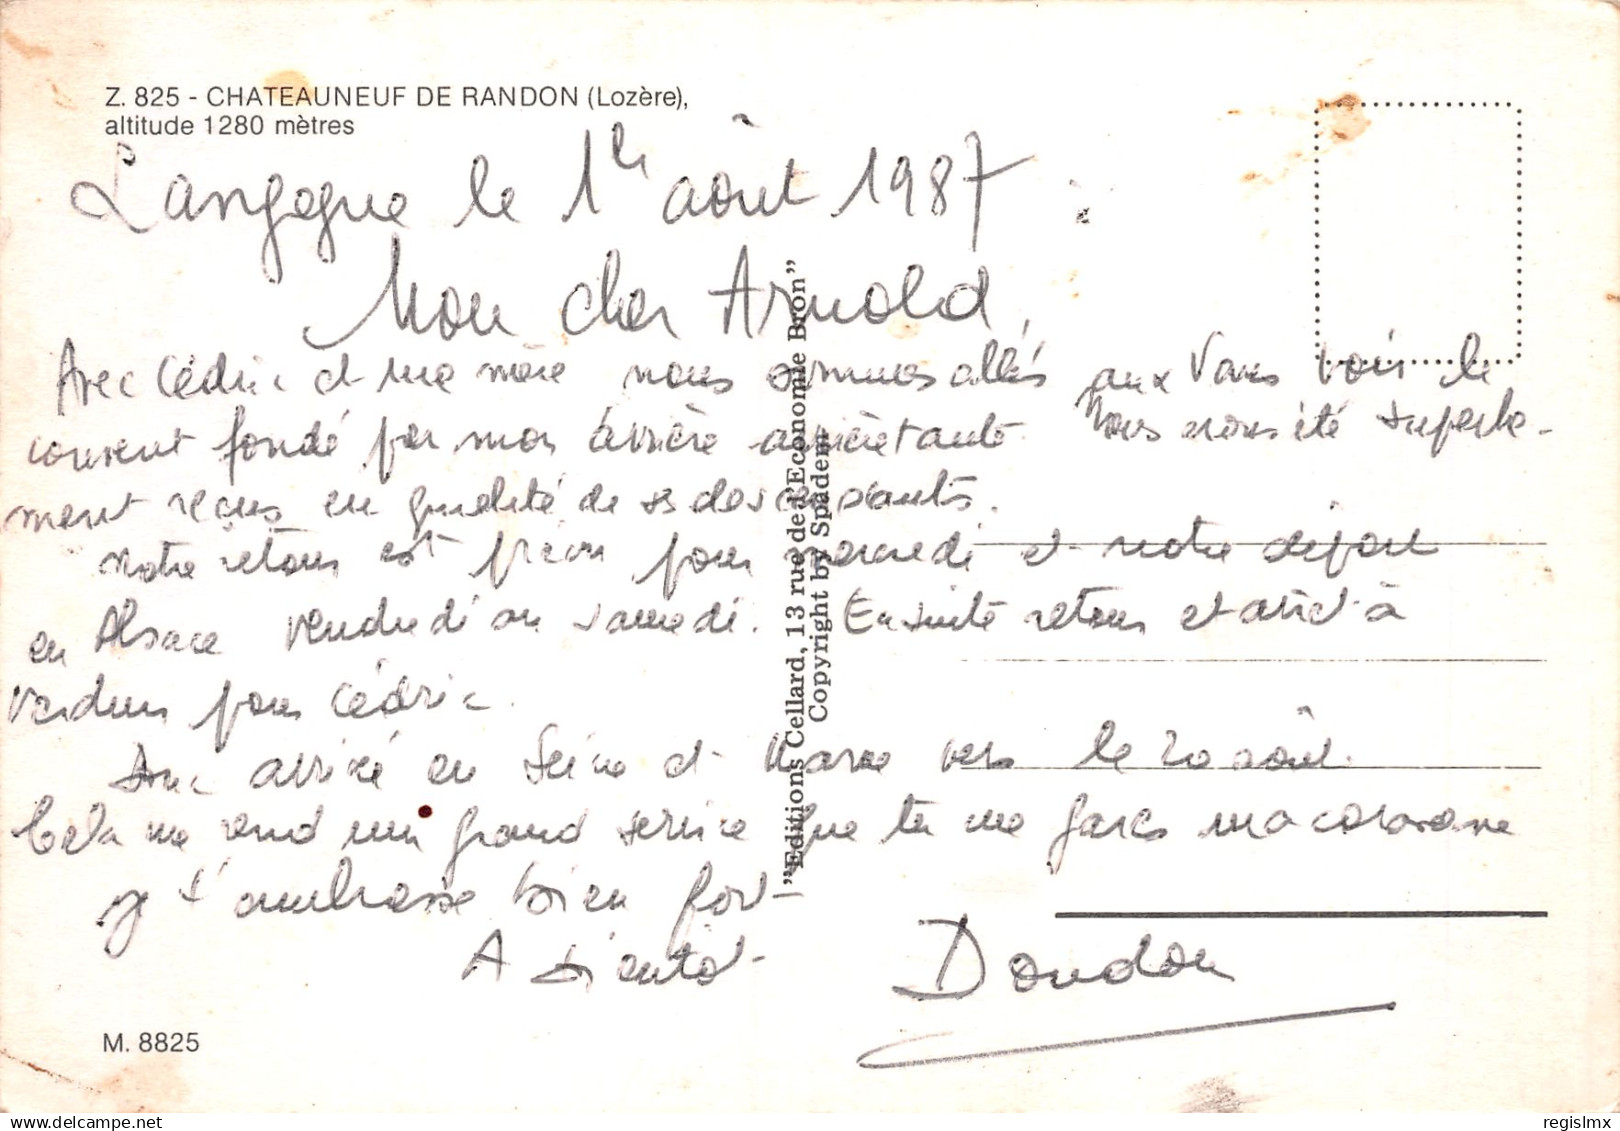 Z. 825 - CHATEAUNEUF DE RANDON (Lozère),
altitude 1280 mètres
Langogne le 1er août 1987
Mon cher Arnold,
Avec Cédric et ma mère nous sommes allés aux Vans voir le
couvent fondé par mon arrière arrière tante. Nous avons été superbe-
ment reçus en qualité de ses descendants.
Notre retour est prévu pour mercredi et notre départ
en Alsace vendredi ou samedi. Ensuite retour et arrêt à
Verdun pour Cédric.
Donc arrivé en Seine et Marne vers le 20 août.
Cela me rend un grand service que tu me gares ma caravane
Je t'embrasse bien fort
A bientôt
Doudou
"Editions Cellard, 13 rue de l'Economie Bron"
Copyright by Spadem
M. 8825
regislmx